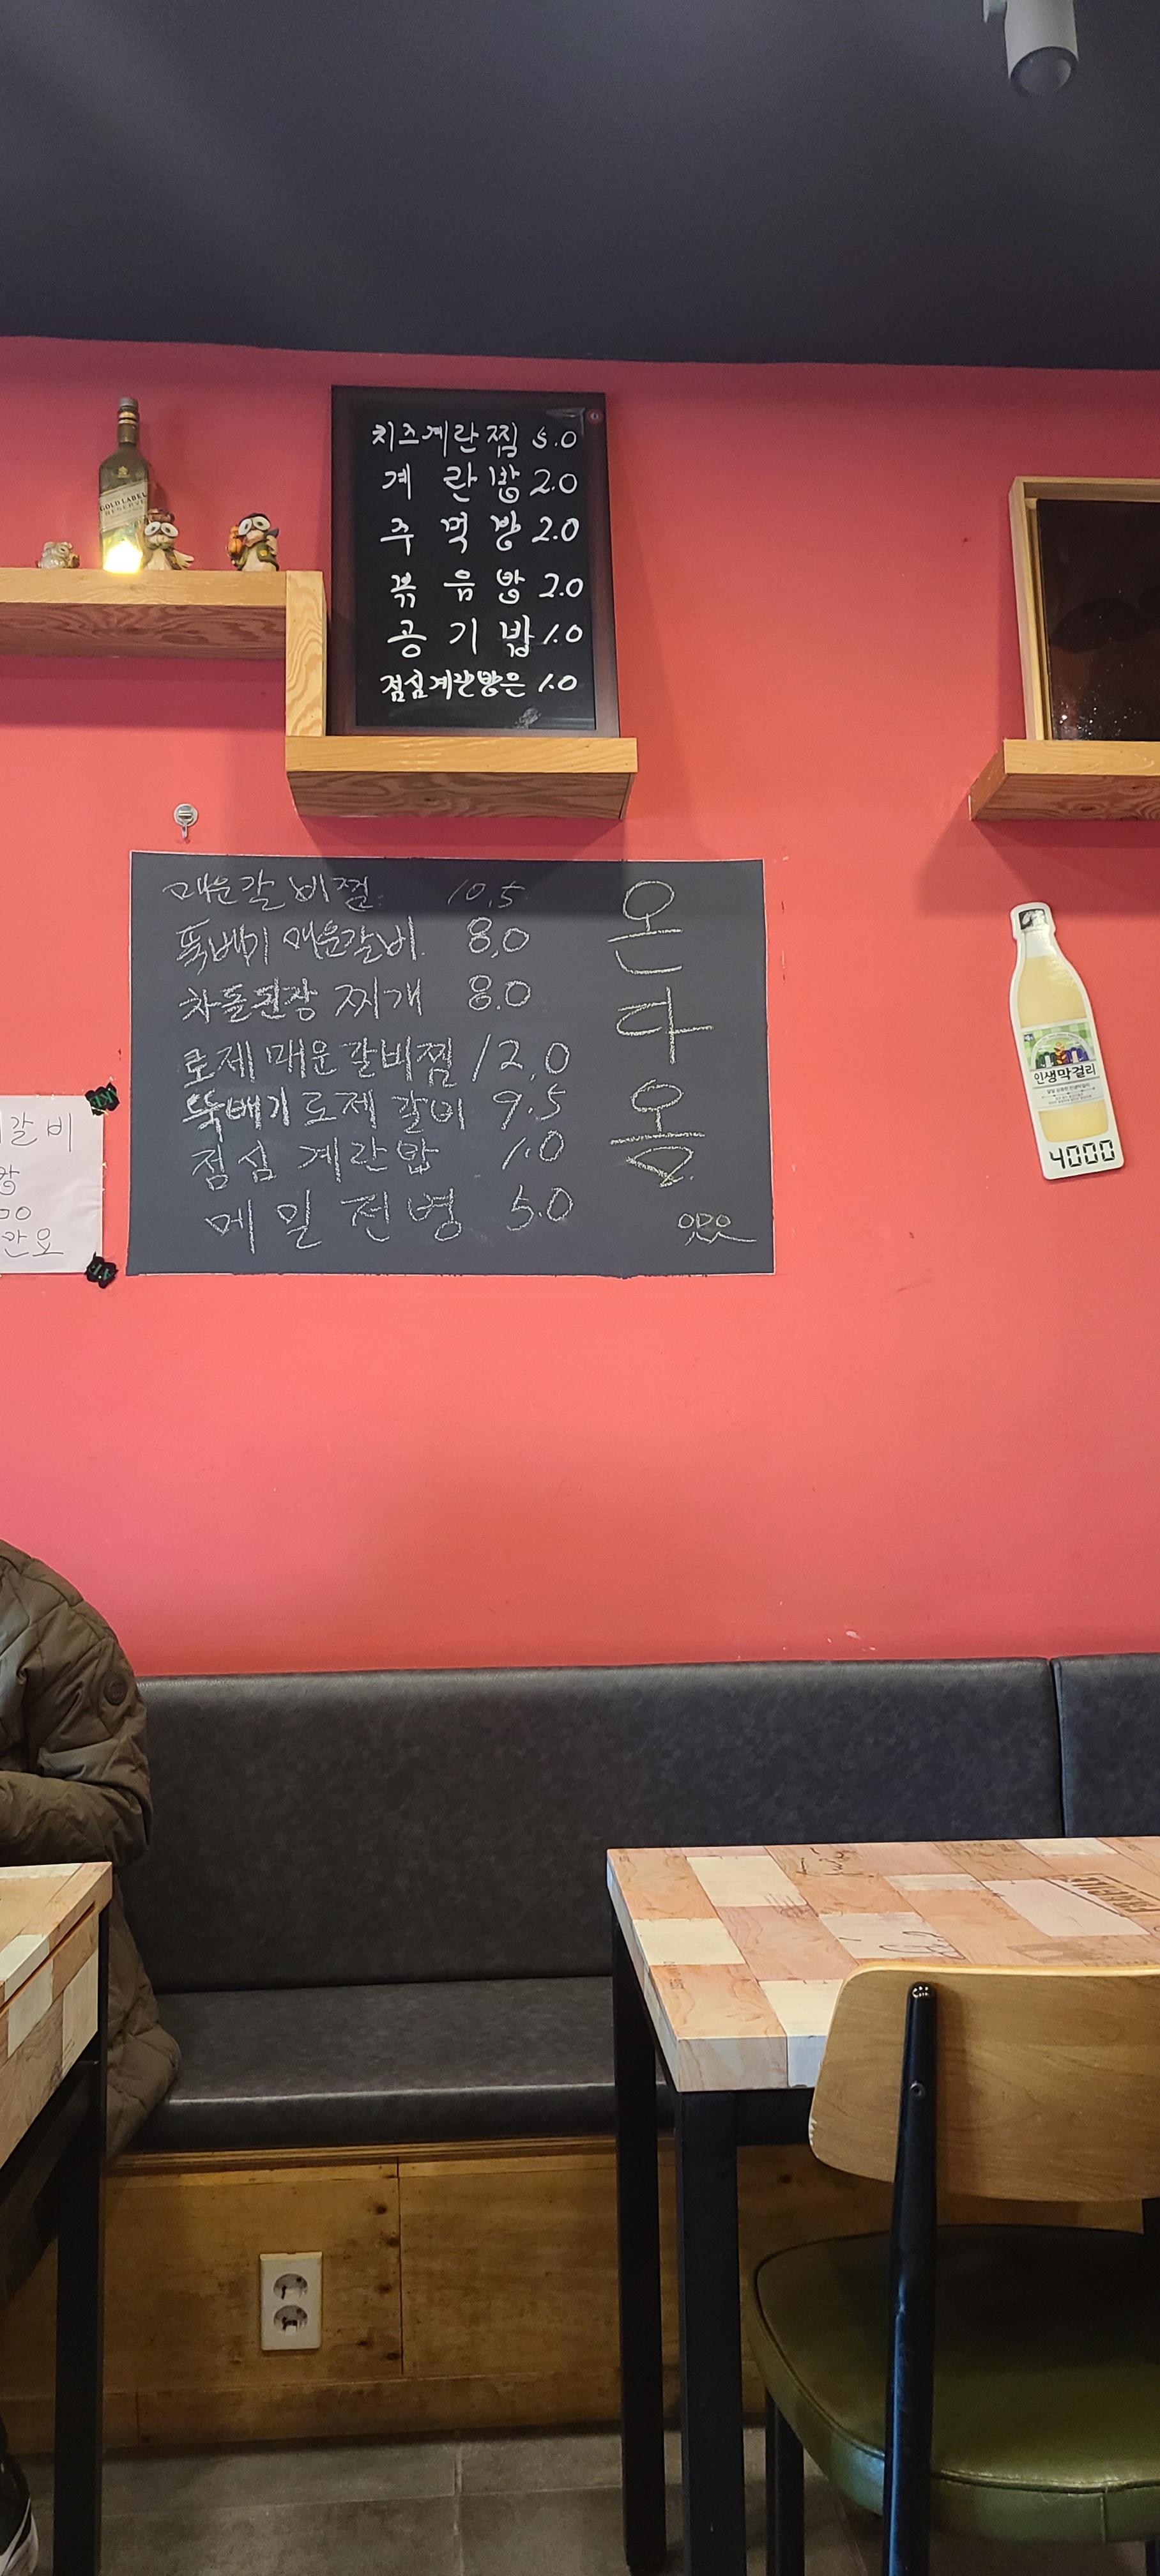 GOLD LABEL
RESERVE
치즈계란찜 5.0
계란밥 2.0
주먹밥 2.0
볶음밥 2.0
공기밥 1.0
점심계란밥은 1.0
매운갈비찜 10.5
뚝배기 매운갈비 8.0
차돌된장 찌개 8.0
로제매운갈비찜 12.0
뚝배기로제갈비 9.5
점심 계란밥 1.0
메밀전병 5.0
온
다
요
갈비
인생막걸리
4000